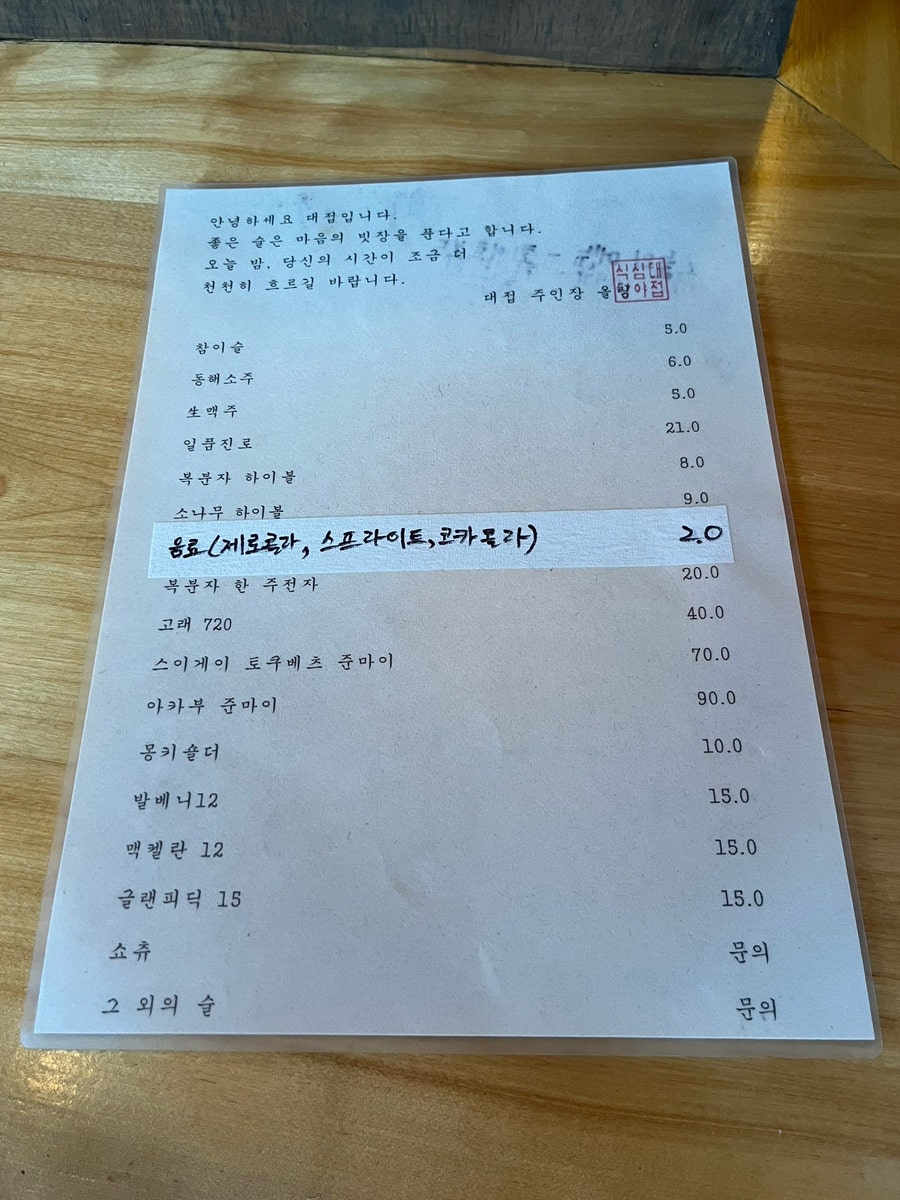 안녕하세요 대접입니다.
좋은 술은 마음의 빗장을 푼다고 합니다.
오늘 밤, 당신의 시간이 조금 더
천천히 흐르길 바랍니다.
대접 주인장 올림
식심대
당야접
참이슬 5.0
동해소주 6.0
生맥주 5.0
일품진로 21.0
복분자 하이볼 8.0
소나무 하이볼 9.0
음료(제로콜라, 스프라이트, 코카콜라) 2.0
복분자 한 주전자 20.0
고래 720 40.0
스이게이 토쿠베츠 준마이 70.0
아카부 준마이 90.0
몽키숄더 10.0
발베니12 15.0
맥켈란 12 15.0
글랜피딕 15 15.0
쇼츄 문의
그 외의 술 문의